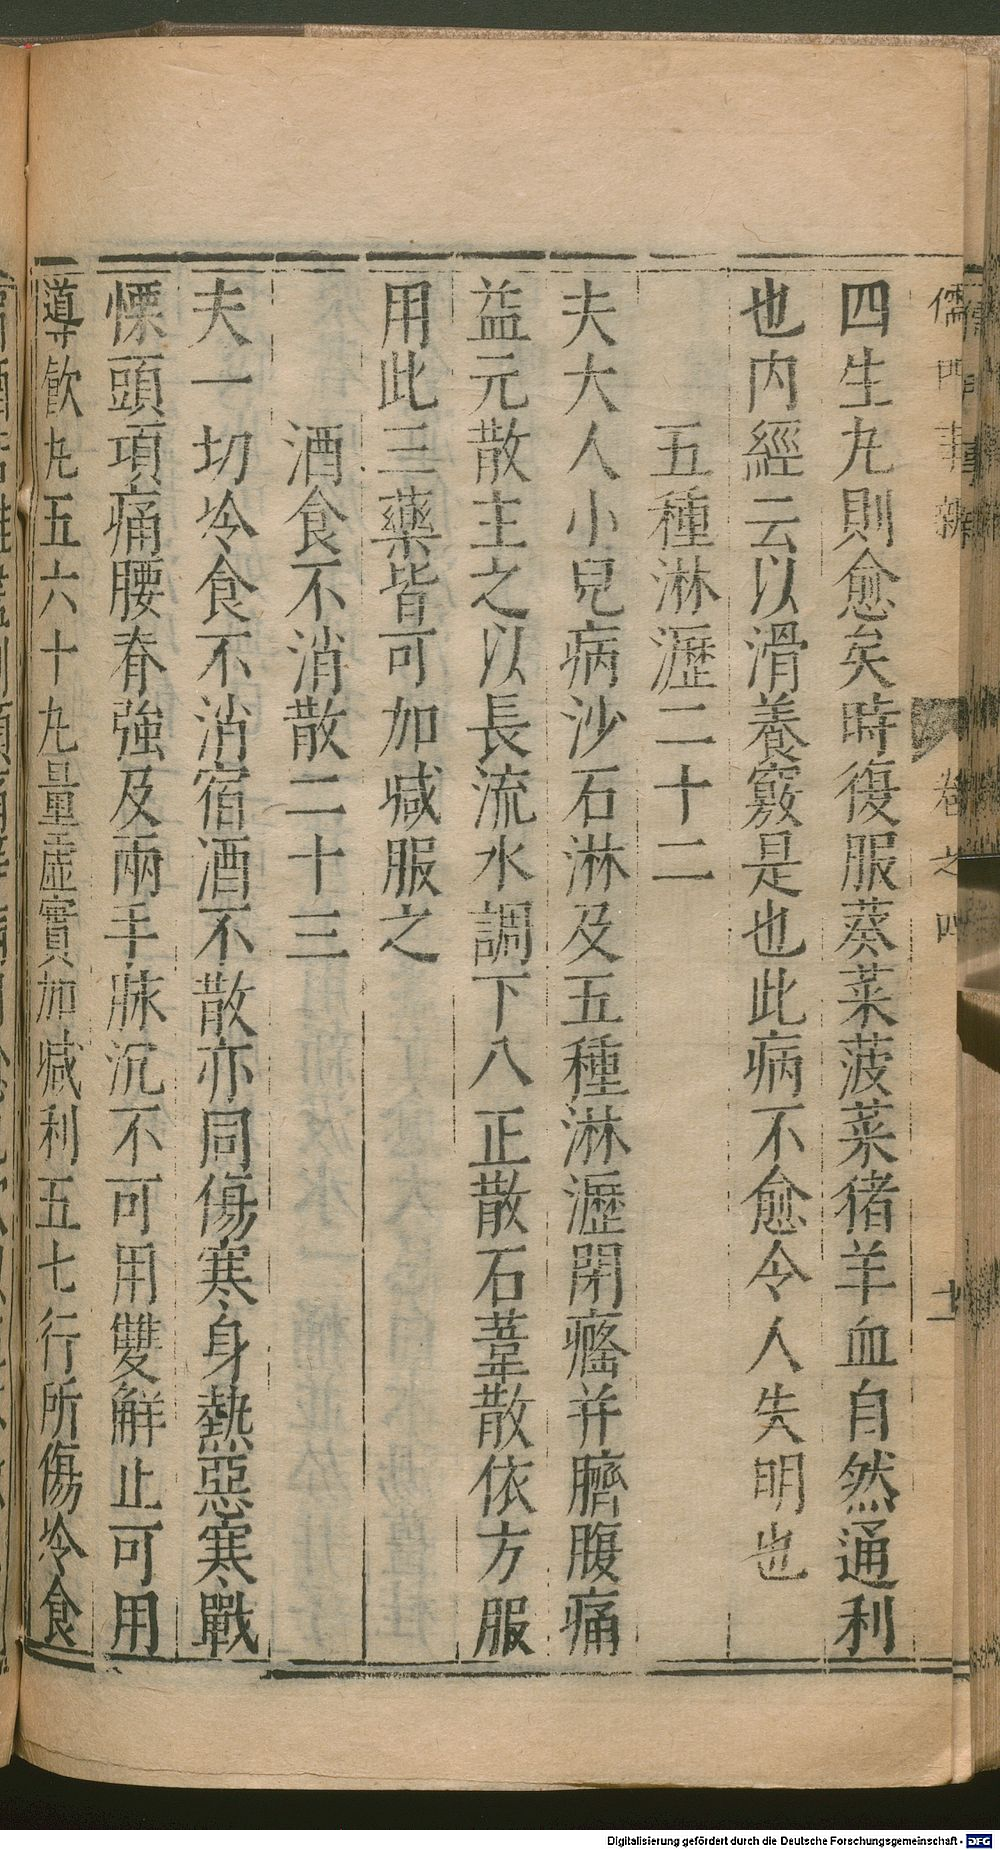 儒門事親 卷之四 十一
四生丸則愈矣時復服葵菜菠菜猪羊血自然通利
也内經云以滑養竅是也此病不愈令人失明也
五種淋瀝二十二
夫大人小兒病沙石淋及五種淋瀝閉癃并臍腹痛
益元散主之以長流水調下八正散石葦散依方服
用此三藥皆可加減服之
酒食不消散二十三
夫一切冷食不消宿酒不散亦同傷寒身熱惡寒戰
慄頭項痛腰脊強及兩手脉沉不可用雙解止可用
導飲丸五六十丸量虛實加减利五七行所傷冷食
Digitalisierung gefördert durch die Deutsche Forschungsgemeinschaft - DFG